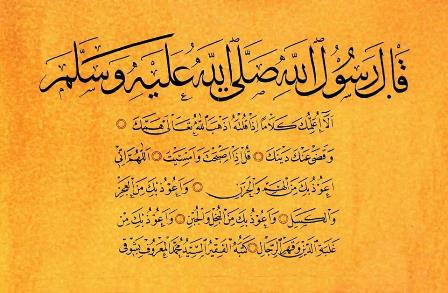 قال رسول الله صلى الله عليه وسلم
ألا أعلمك كلاما إذا قلته أذهب الله تعالى همك
وقضى عنك دينك قل إذا أصبحت وأمسيت اللهم إني
أعوذ بك من الهم والحزن وأعوذ بك من العجز
والكسل وأعوذ بك من البخل والجبن وأعوذ بك من
غلبة الدين وقهر الرجال كتبه الفقير السيد محمد المعروف بشوقي